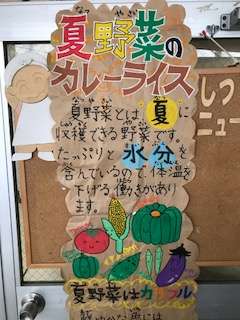 なつ や さい
夏野菜の
カレーライス
夏野菜とは、夏に
収穫できる野菜です。
たっぷりと水分を
含んでいるので、体温を
下げる働きがあり
ます。
夏野菜はカラフル
しつ
ニュー